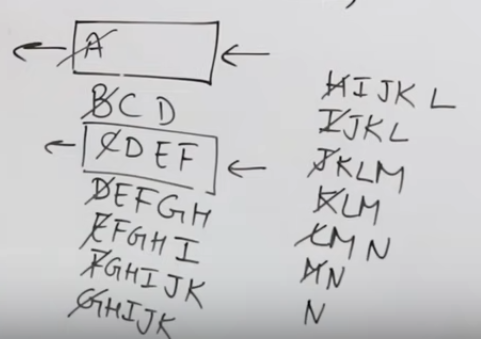 A
BCD
CDEF
DEFGH
EFGHI
FGHIJK
GHIJK
HIJKL
IJKL
JKLM
KLM
LMN
MN
N